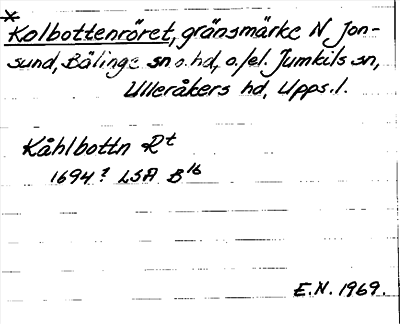 *
Kolbottenröret, gränsmärke N Jon-
sund, Bälinge sn o. hd, o./el. Jumkils sn,
Ulleråkers hd, Upps. l.
Kåhlbottn Rt
1694? LSA B16
E.N. 1969.